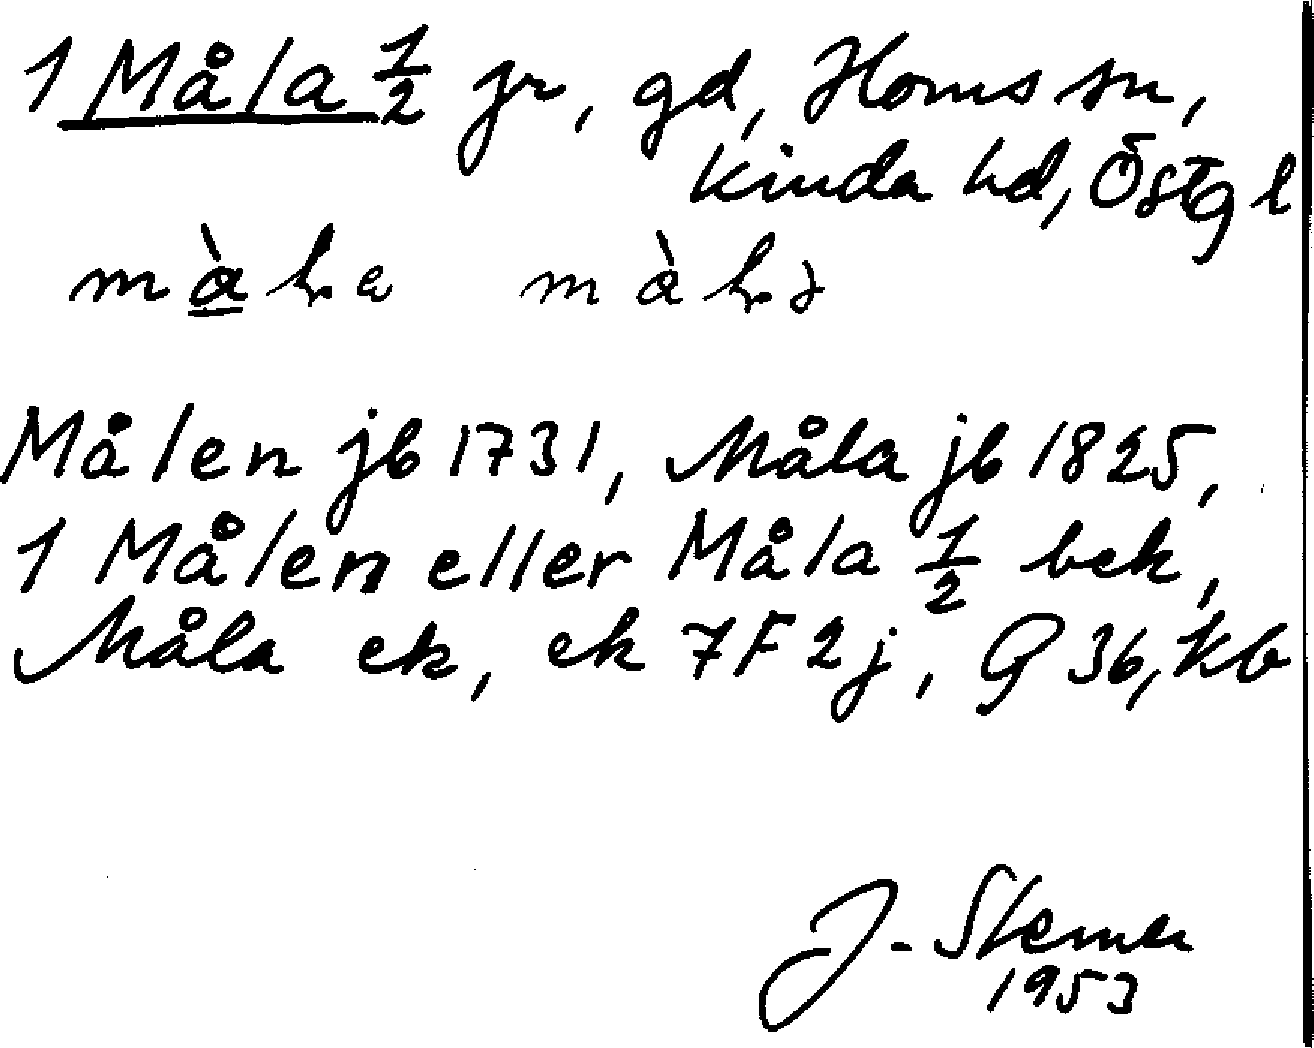 1 Måla 1/2 jr, gd, Horns sn,
Kinda hd, Östg l
Målen jb 1731, Måla jb 1825,
1 Målen eller Måla 1/2 bek,
Måla ek, ek 7F2j, G 36, kb
J.
1953